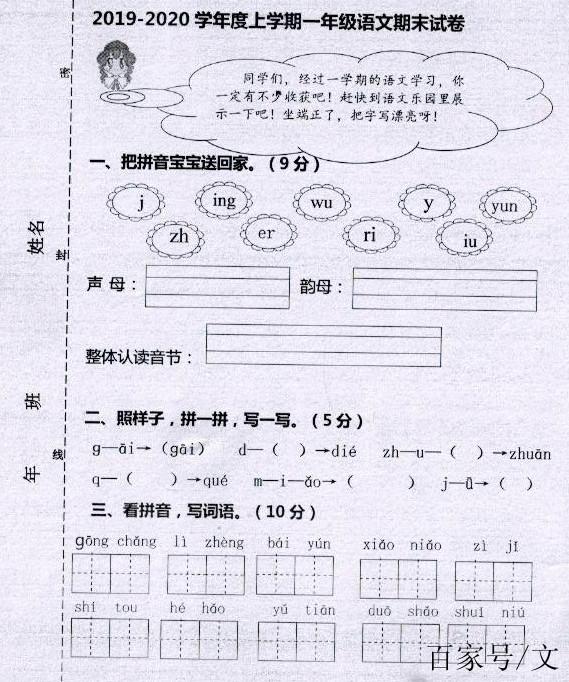 2019-2020学年度上学期一年级语文期末试卷
同学们，经过一学期的语文学习，你
一定有不少收获吧！赶快到语文乐园里展
示一下吧！坐端正了，把字写漂亮呀！
一、把拼音宝宝送回家。（9分）
j ing wu y yun
zh er ri iu
声母： 韵母：
整体认读音节：
二、照样子，拼一拼，写一写。（5分）
g—āi→（gāi） d—（ ）→dié zh—u—（ ）→zhuān
q—（ ）→qué m—i—ǎo→（ ） j—ǖ→（ ）
三、看拼音，写词语。（10分）
gōng chǎng lì zhèng bái yún xiǎo niǎo zì jǐ
shí tou hé hǎo yǔ tiān duō shǎo shuǐ niú
密
封
线
姓名
班
年
百家号/文